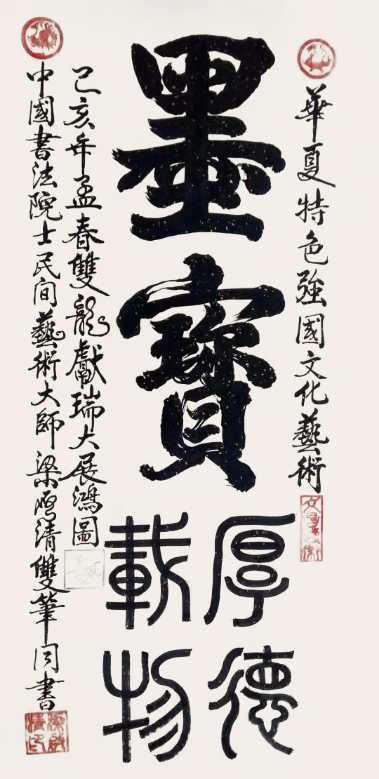 華夏特色強國文化藝術
墨寶
厚德
載物
己亥年孟春雙龍獻瑞大展鴻圖
中國書法院士民间藝術大師梁阿清雙筆同書